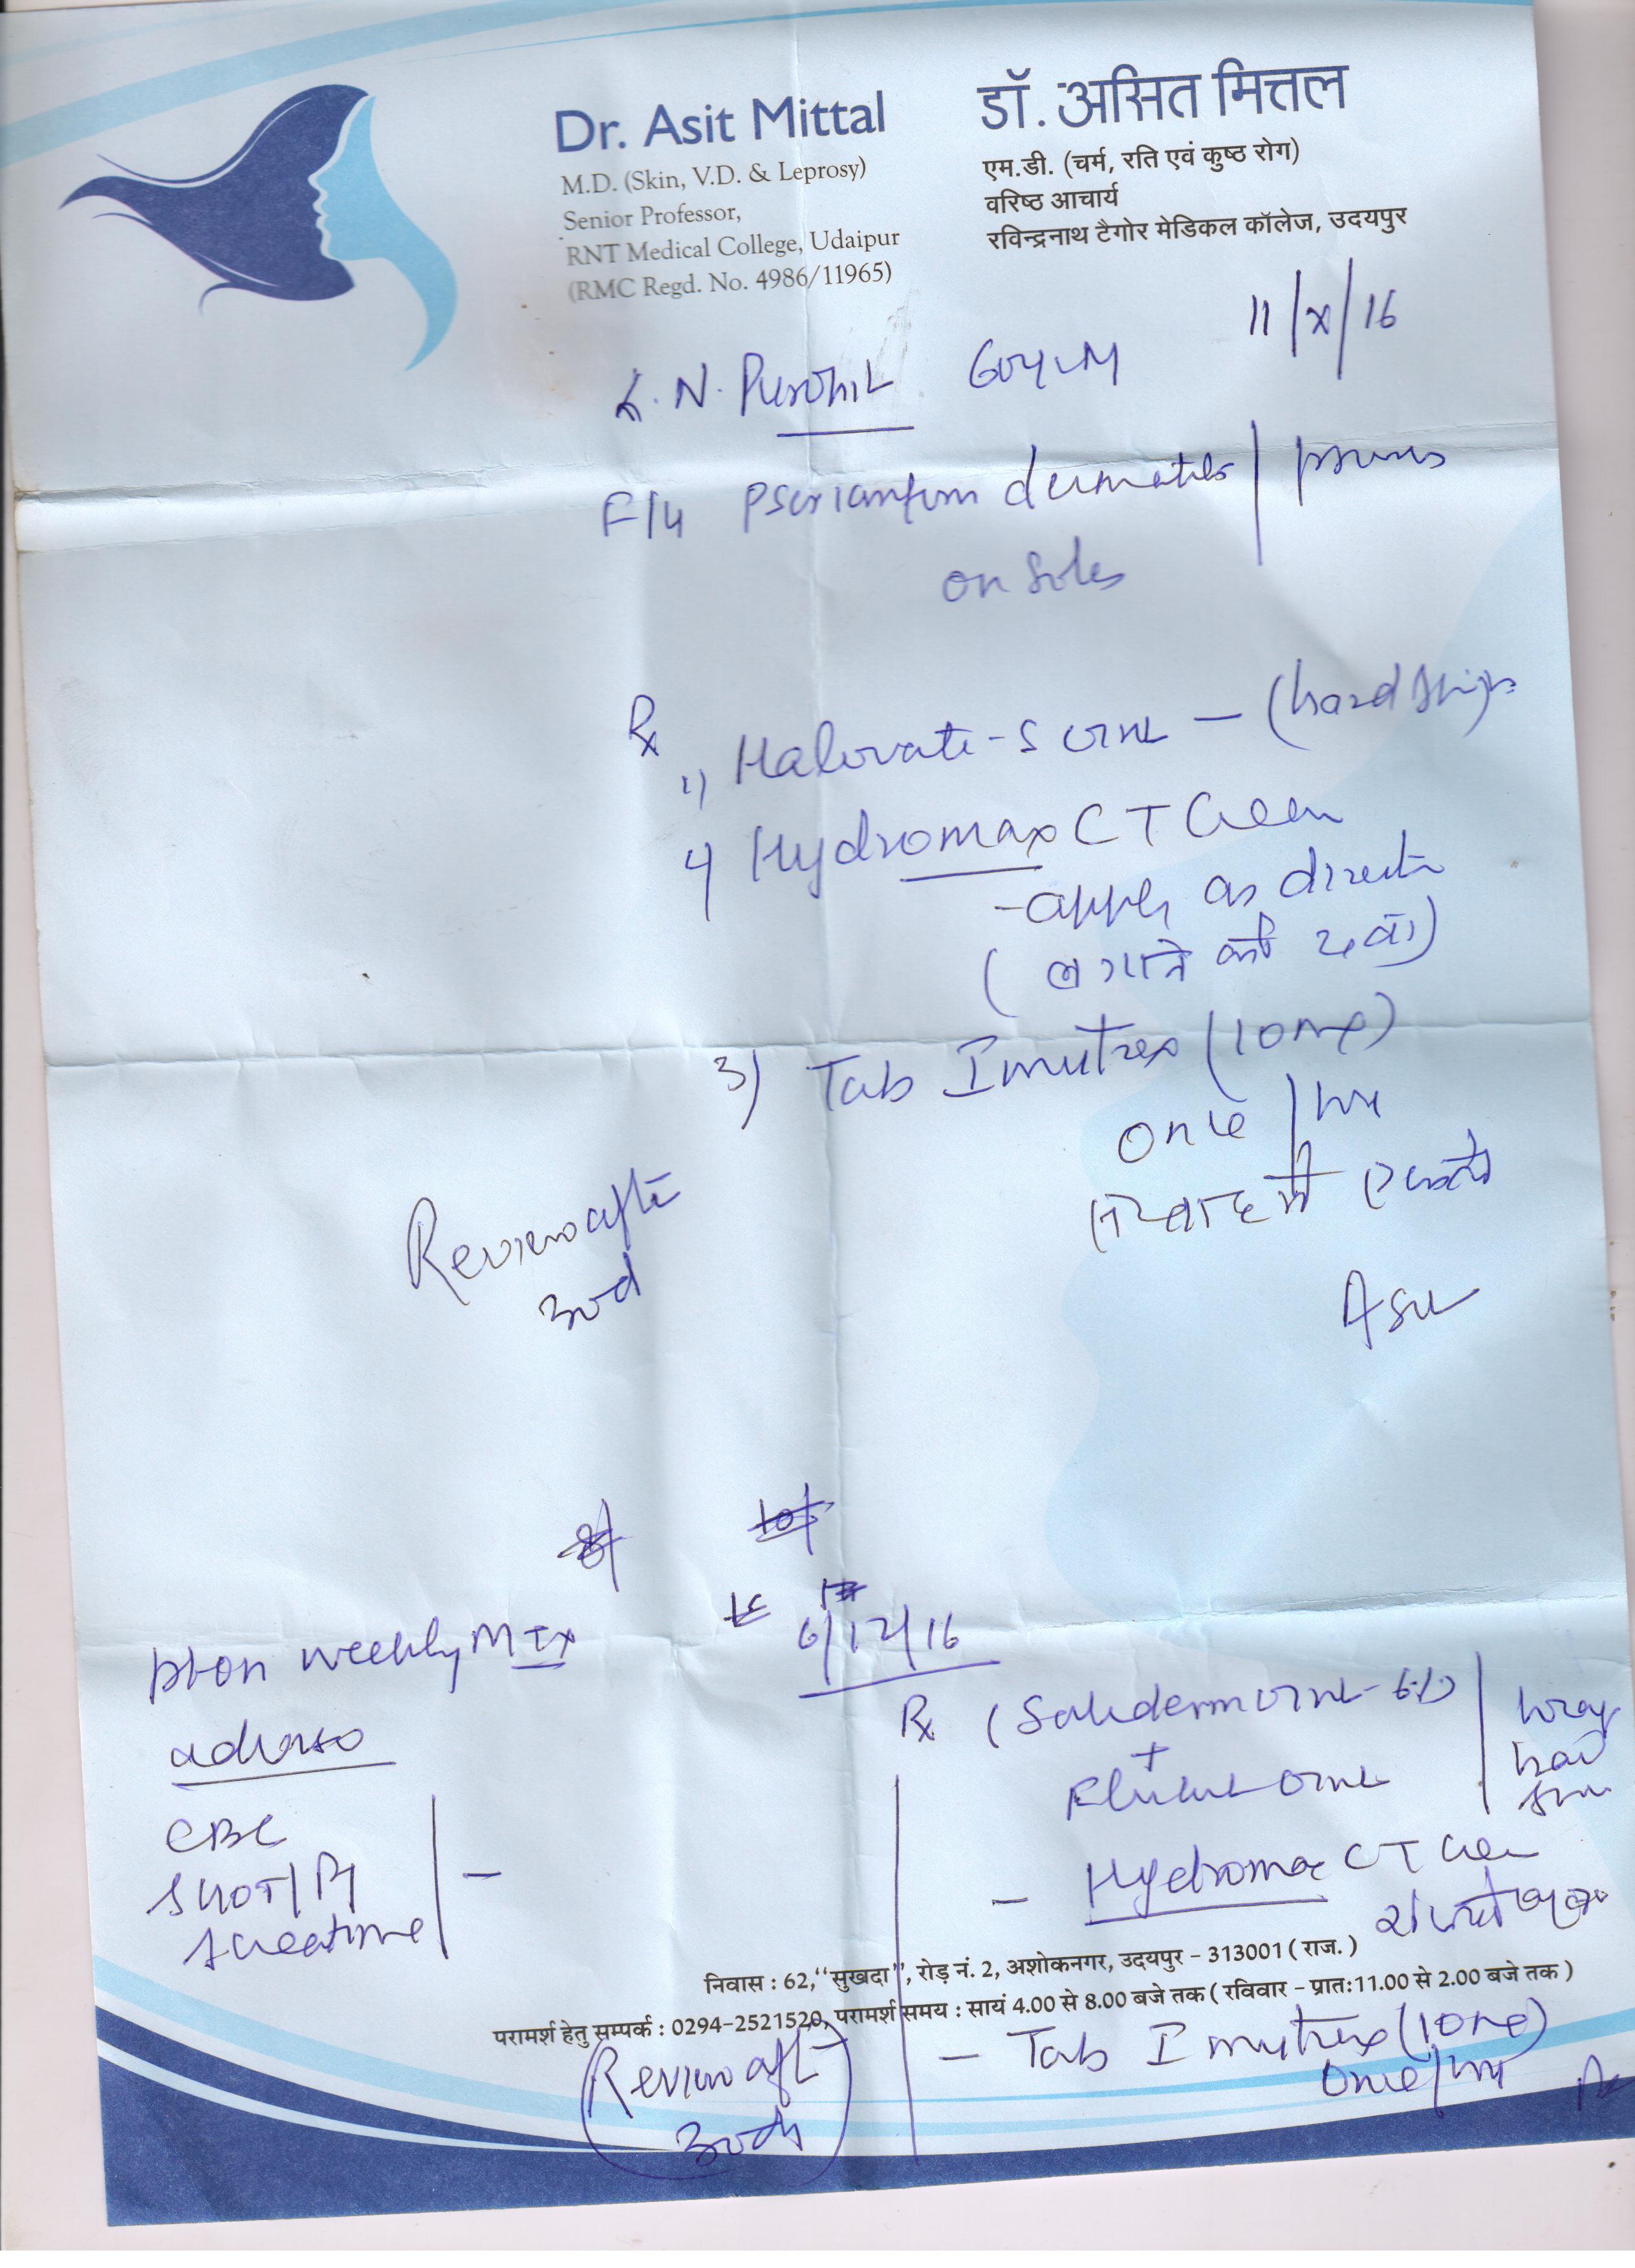 Dr. Asit Mittal
M.D. (Skin, V.D. & Leprosy)
Senior Professor,
RNT Medical College, Udaipur
(RMC Regd. No. 4986/11965)
डॉ. असित मित्तल
एम.डी. (चर्म, रति एवं कुष्ठ रोग)
वरिष्ठ आचार्य
रविन्द्रनाथ टैगोर मेडिकल कॉलेज, उदयपुर
11/X/16
N. Purohit 60y/M
F/4 dermatitis
on soles
Rx
1) Halovate-S oint - (hard
Hydromax CT Cream
- apply as direct
(लगाने की दवा)
3) Tab Imutrex (10mg)
once/wk
Review after
30d
6/12/16
on weekly MTX
advise
CBC
SGOT/PT
S creatinine
Rx (Salederm oint - 6%
+
oint
- Hydromax CT Cream
निवास : 62, "सुखदा", रोड़ नं. 2, अशोकनगर, उदयपुर - 313001 ( राज. )
परामर्श हेतु सम्पर्क : 0294-2521520, परामर्श समय : सायं 4.00 से 8.00 बजे तक ( रविवार - प्रातः11.00 से 2.00 बजे तक )
- Tab Imutrex (10mg)
once/wk
Review aft
30 d